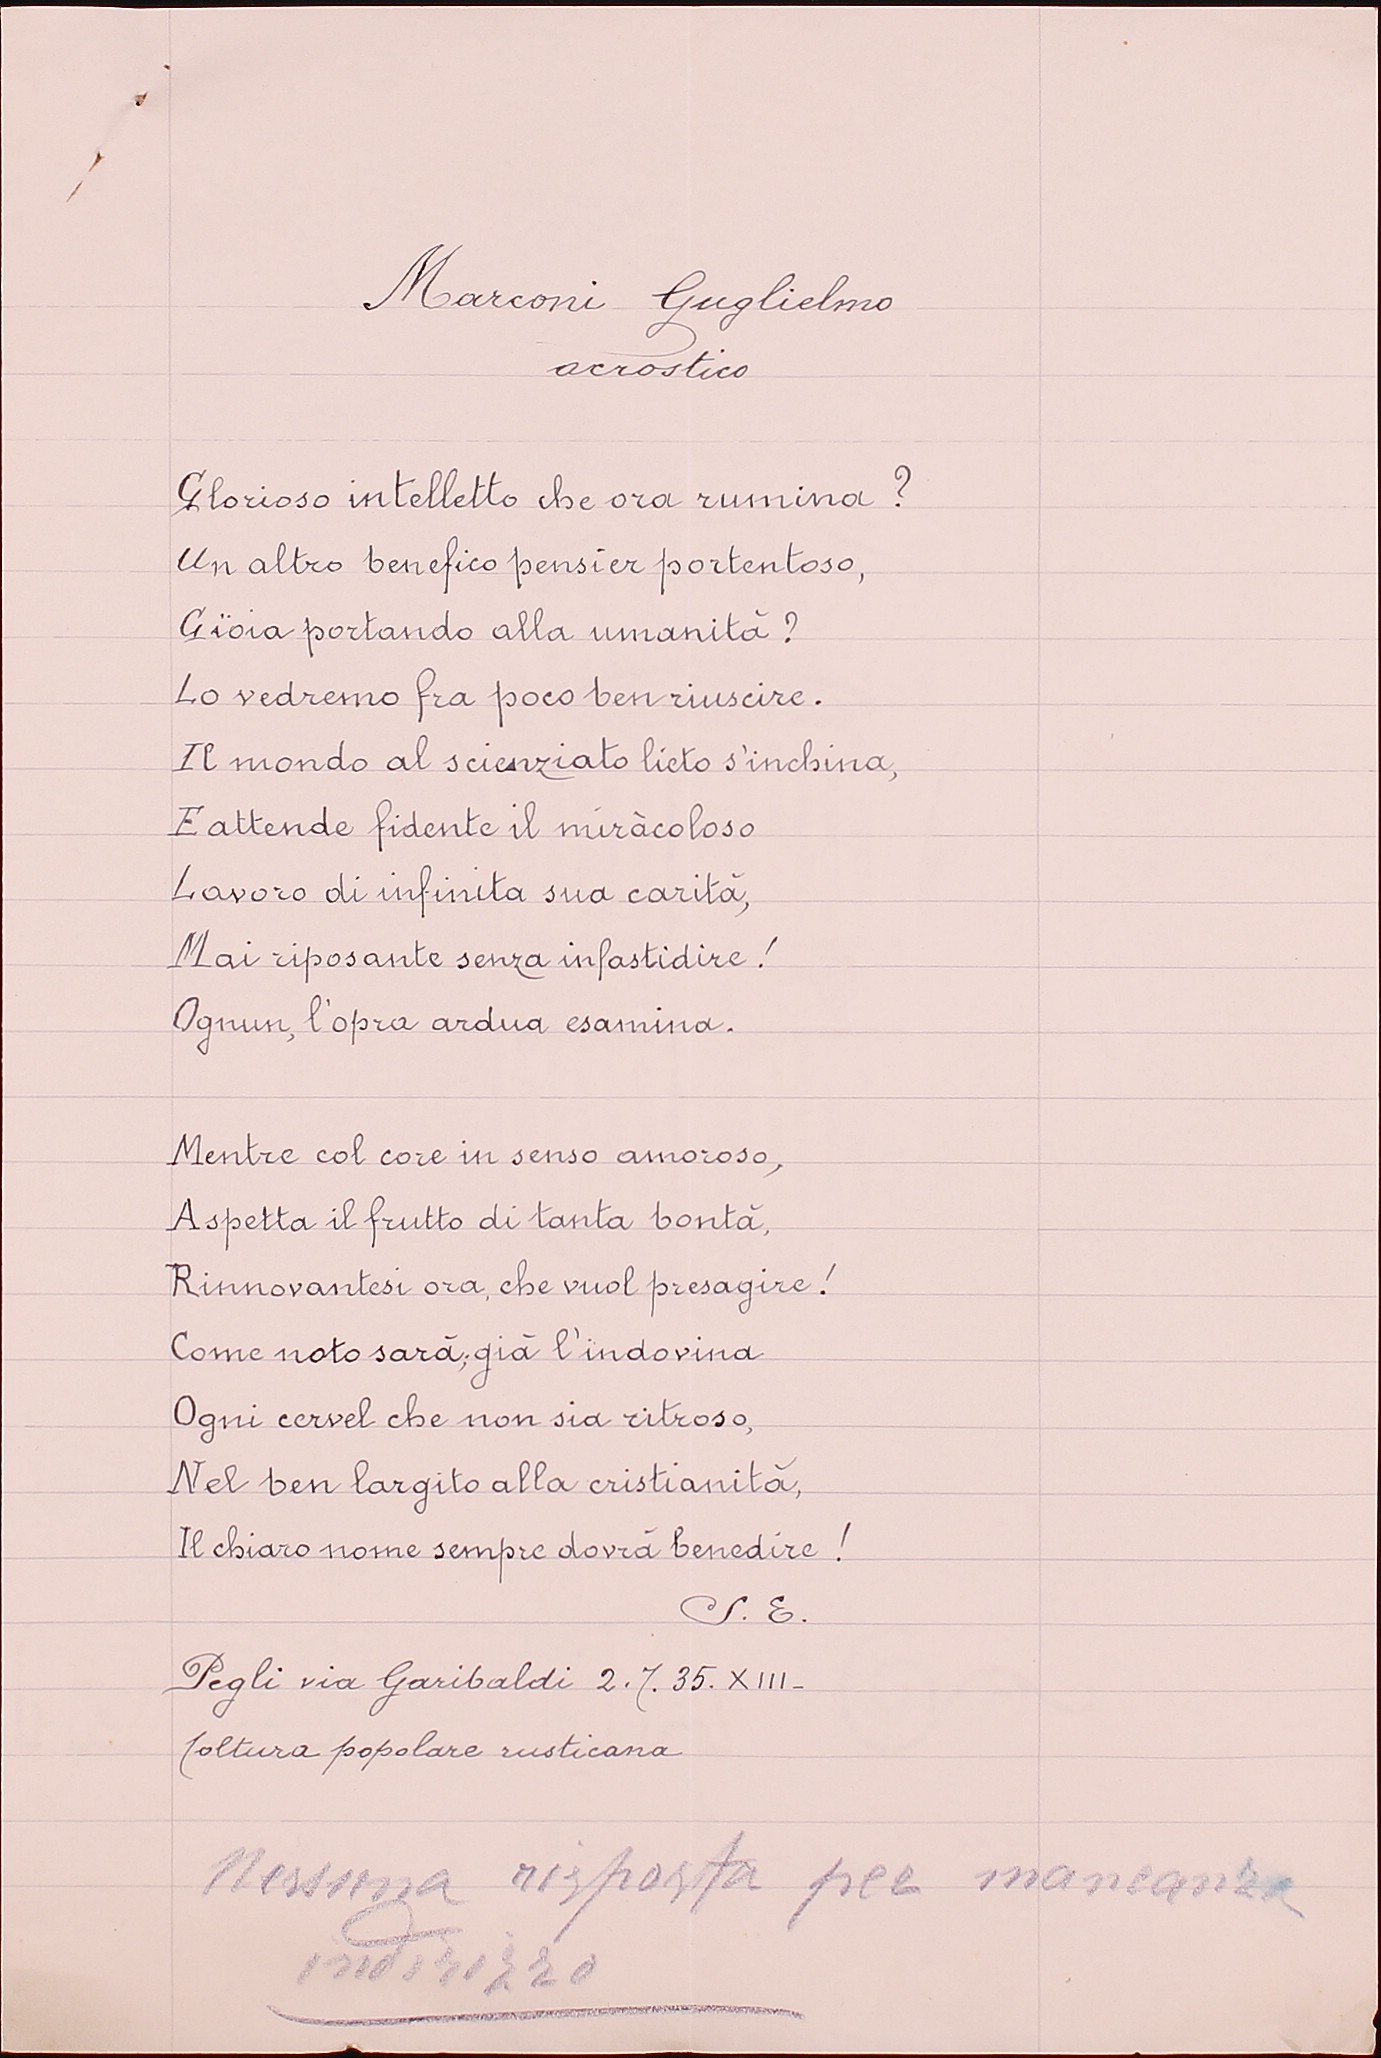 Marconi Guglielmo
acrostico
Glorioso intelletto che ora rumina?
Un altro benefico pensier portentoso,
Gïoia portando alla umanità?
Lo vedremo fra poco ben riuscire.
Il mondo al scienziato lieto s'inchina,
E attende fidente il miràcoloso
Lavoro di infinita sua carità,
Mai riposante senza infastidire!
Ognun, l'opra ardua esamina.
Mentre col core in senso amoroso,
Aspetta il frutto di tanta bontà,
Rinnovantesi ora, che vuol presagire!
Come noto sarà; già l'indovina
Ogni cervel che non sia ritroso,
Nel ben largito alla cristianità,
Il chiaro nome sempre dovrà benedire!
S. E.
Pegli via Garibaldi 2.7.35.XIII-
Coltura popolare rusticana
Nessuna risposta per mancanza
indirizzo